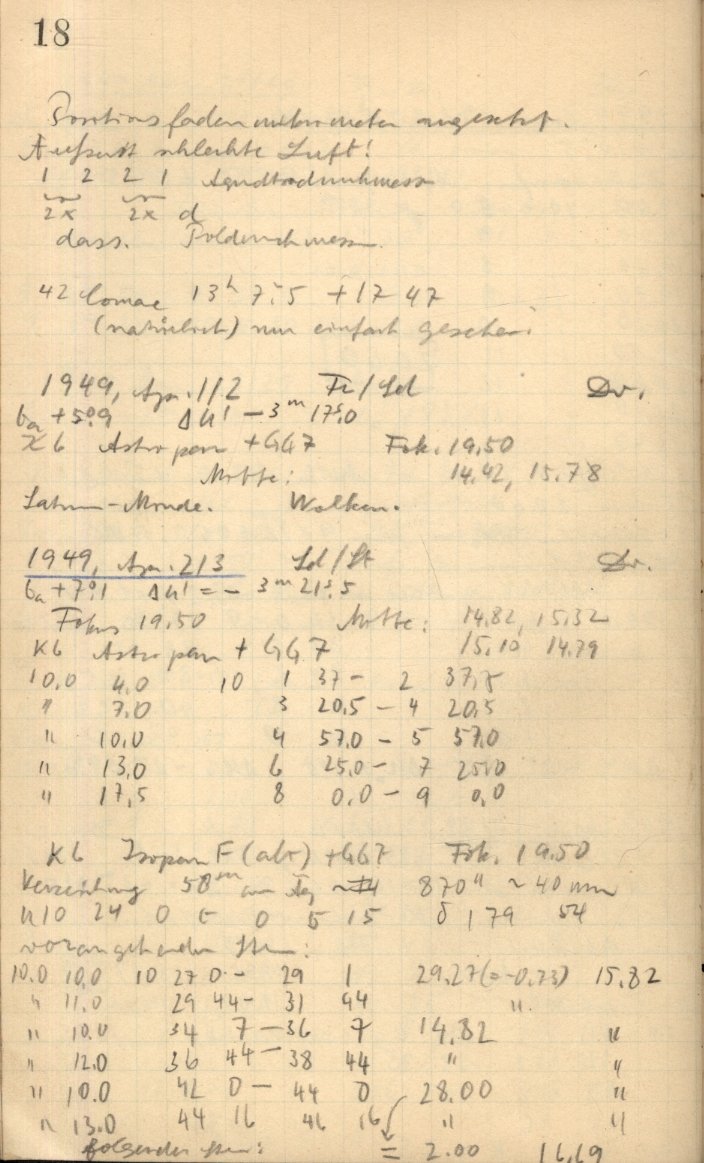 18
Positionsfadenmikrometer angesetzt.
Äußerst schlechte Luft!
1 2 2 1
2x 2x d
dass.
42 Comae 13h 7m.5 +17 47
(natürlich) nur einfach gesehen!
1949, Apr. 1/2 Dr.
+5°.9 ΔU' -3m 17s.0
K6 Astropan + GG7 Fok. 19.50
Mitte: 14.42, 15.78
Saturn-Monde. Wolken.
1949, Apr. 2/3 Dr.
+7°.1 ΔU' = - 3m 21s.5
Fokus 19.50 Mitte: 14.82, 15.32
K6 Astropan + GG7 15.10 14.79
10.0 4.0 10 1 37 - 2 37.5
" 7.0 3 20.5 - 4 20.5
" 10.0 4 57.0 - 5 57.0
" 13.0 6 25.0 - 7 25.0
" 17.5 8 0.0 - 9 0.0
K6 Isopan F (alt) + GG7 Fok. 19.50
870" ~ 40 mm
10 24 0 0 5 15 δ 179 54
vorangehender Stern:
10.0 10.0 10 27 0 - 29 1 29.27 (= -0.73) 15.82
" 11.0 29 44 - 31 44 "
" 10.0 34 7 - 36 7 14.82 "
" 12.0 36 44 - 38 44 " "
" 10.0 42 0 - 44 0 28.00 "
" 13.0 44 16 46 16 " "
folgender Stern: = 2.00 16.69